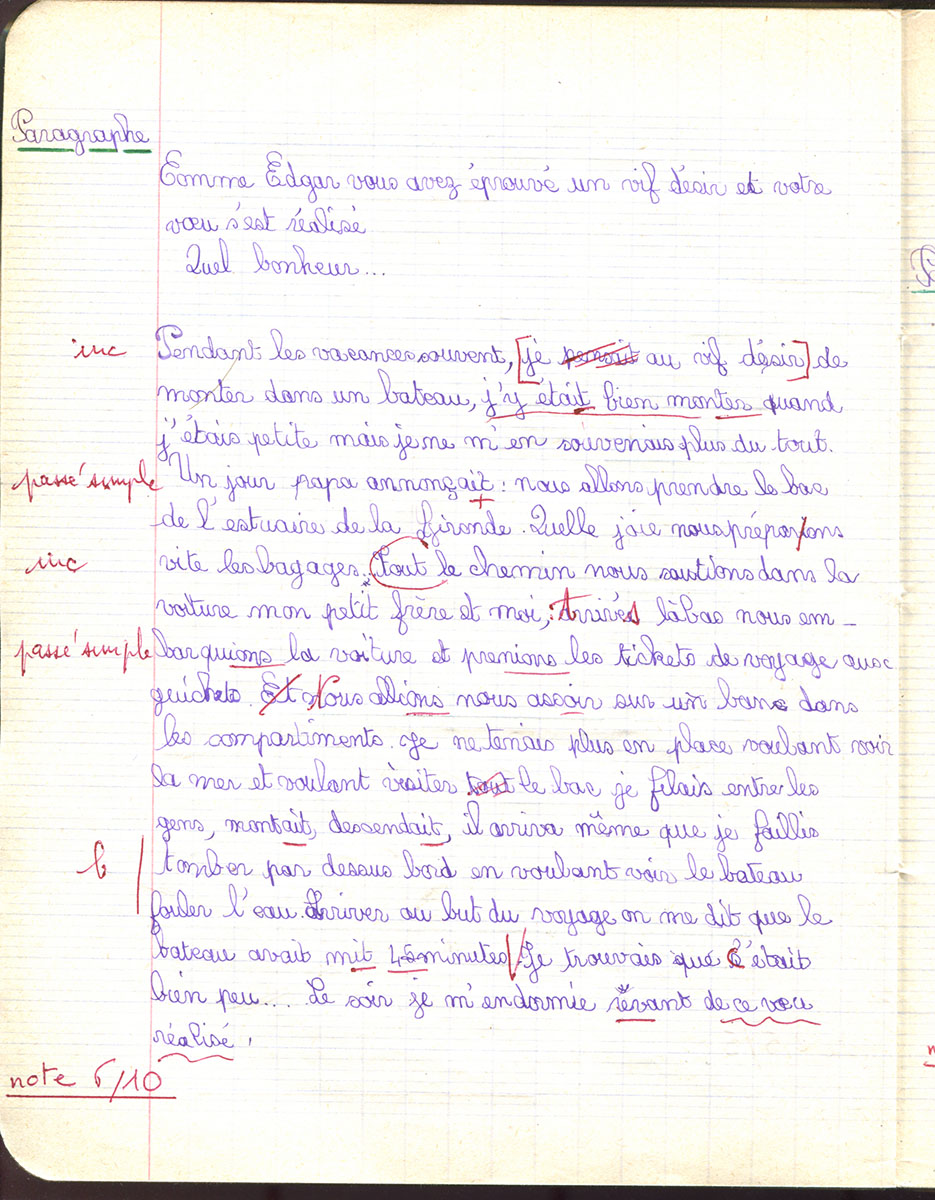 Paragraphe
Comme Edgar vous avez éprouvé un vif désir et votre
vœu s'est réalisé
Quel bonheur...
inc Pendant les vacances souvent, [je pensait au vif désir] de
monter dans un bateau, j'y était bien montes quand
j'étais petite mais je ne m'en souvenais plus du tout.
passé simple Un jour papa annonçait : nous allons prendre le bac
de l'estuaire de la Gironde. Quelle joie nous préparions
inc vite les bagages. Tout le chemin nous sautions dans la
voiture mon petit frère et moi, : Arrivés làbas nous em-
passé simple barquions la voiture et prenions les tickets de voyage aux
guichets. Et Nous allions nous assoir sur un banc dans
les compartiments. Je ne tenais plus en place voulant voir
la mer et voulant visiter tout le bac je filais entre les
gens, montait, dessendait, il arriva même que je faillis
b tomber par dessus bord en voulant voir le bateau
fouler l'eau. Arriver au but du voyage on me dit que le
bateau avait mit 45 minutes. Je trouvais que c'était
bien peu... Le soir je m'endormie rêvant de ce vœu
réalisé.
note 6/10